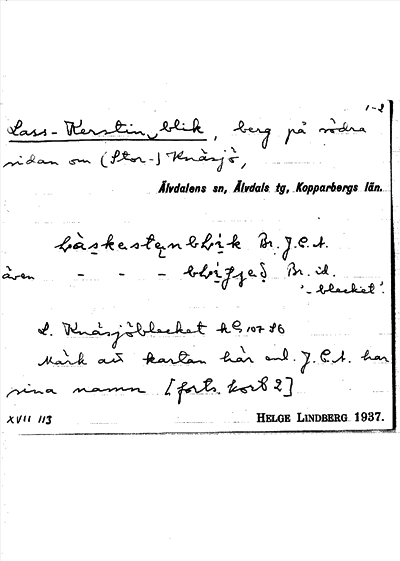 1-2
Lass-Kerstin blik, berg på södra
sidan om (Stor-) Knäsjö,
Älvdalens sn, Älvdals tg, Kopparbergs län.
Br. J.E.A.
även - - - Br. id.
'-blecket'.
L. Knäsjöblecket
Märk att kartan här enl. J.E.A. har
sina namn [forts. kort 2]
XVII 113
HELGE LINDBERG 1937.